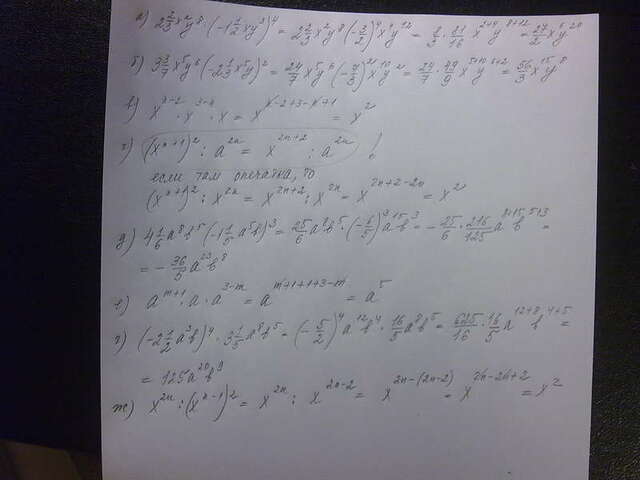 а) 2 2/3 x²y⁸ · (-1 1/2 xy³)⁴ = 2 2/3 x²y⁸ (-3/2)⁴ x⁴y¹² = 8/3 · 81/16 x²⁺⁴y⁸⁺¹² = 27/2 x⁶y²⁰
б) 3 3/7 x⁵y⁶ (-2 1/3 x⁵y)² = 24/7 x⁵y⁶ (-7/3)² x¹⁰y² = 24/7 · 49/9 x⁵⁺¹⁰y⁶⁺² = 56/3 x¹⁵y⁸
в) xⁿ⁻² · x³⁻ⁿ · x = xⁿ⁻²⁺³⁻ⁿ⁺¹ = x²
г) (xⁿ⁺¹)² : a²ⁿ = x²ⁿ⁺² : a²ⁿ !
если там опечатка, то
(xⁿ⁺¹)² : x²ⁿ = x²ⁿ⁺² : x²ⁿ = x²ⁿ⁺²⁻²ⁿ = x²
д) 4 1/6 a⁸b⁵ · (-1 1/5 a⁵b)³ = 25/6 a⁸b⁵ · (-6/5)³ a¹⁵b³ = -25/6 · 216/125 a⁸⁺¹⁵b⁵⁺³ =
= -36/5 a²³b⁸
е) aᵐ⁺¹ · a · a³⁻ᵐ = aᵐ⁺¹⁺¹⁺³⁻ᵐ = a⁵
(-2 1/2 a³b)⁴ · 3 1/5 a⁸b⁵ = (-5/2)⁴ a¹²b⁴ · 16/5 a⁸b⁵ = 625/16 · 16/5 a¹²⁺⁸ b⁴⁺⁵ =
= 125a²⁰b⁹
x²ⁿ : (xⁿ⁻¹)² = x²ⁿ : x²ⁿ⁻² = x²ⁿ⁻⁽²ⁿ⁻²⁾ = x²ⁿ⁻²ⁿ⁺² = x²